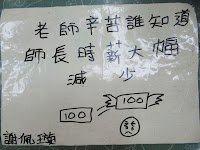 老師辛苦誰知道
師長時薪大幅
減少
100
100
謝佩璇